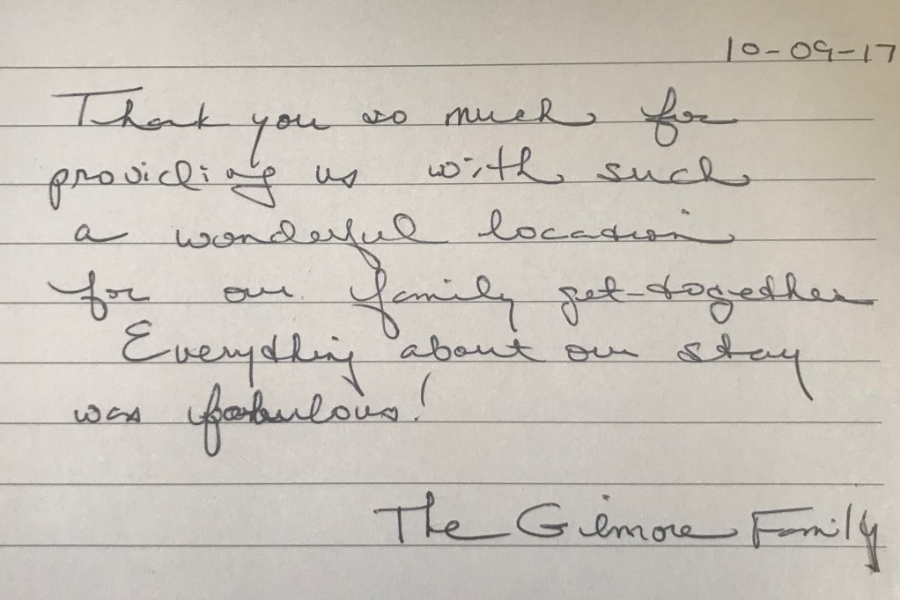 10-09-17
Thank you so much for
providing us with such
a wonderful location
for our family get-together
Everything about our stay
was fabulous!
The Gilmore Family